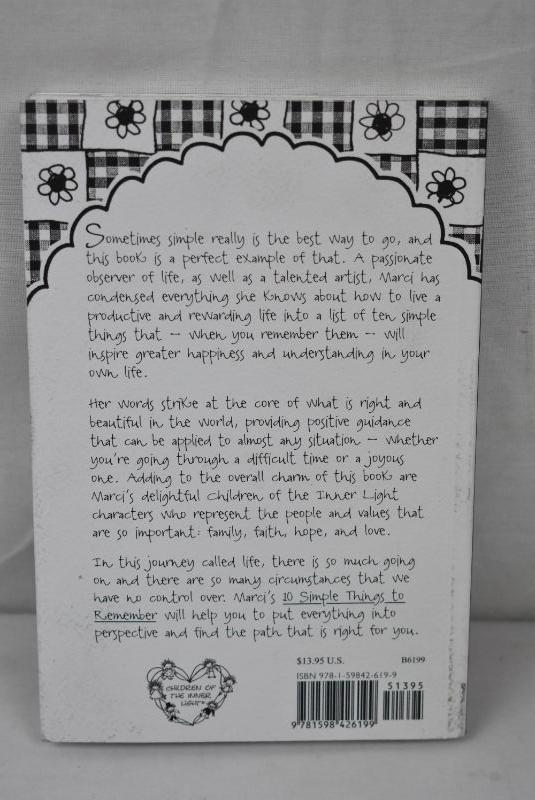 Sometimes simple really is the best way to go, and
this book is a perfect example of that. A passionate
observer of life, as well as a talented artist, Marci has
condensed everything she knows about how to live a
productive and rewarding life into a list of ten simple
things that — when you remember them — will
inspire greater happiness and understanding in your
own life.
Her words strike at the core of what is right and
beautiful in the world, providing positive guidance
that can be applied to almost any situation — whether
you're going through a difficult time or a joyous
one. Adding to the overall charm of this book are
Marci's delightful Children of the Inner Light
characters who represent the people and values that
are so important: family, faith, hope, and love.
In this journey called life, there is so much going
on and there are so many circumstances that we
have no control over. Marci's 10 Simple Things to
Remember will help you to put everything into
perspective and find the path that is right for you.
CHILDREN OF
THE INNER
LIGHT
$13.95 U.S. B6199
ISBN 978-1-59842-619-9
51395
9 781598 426199